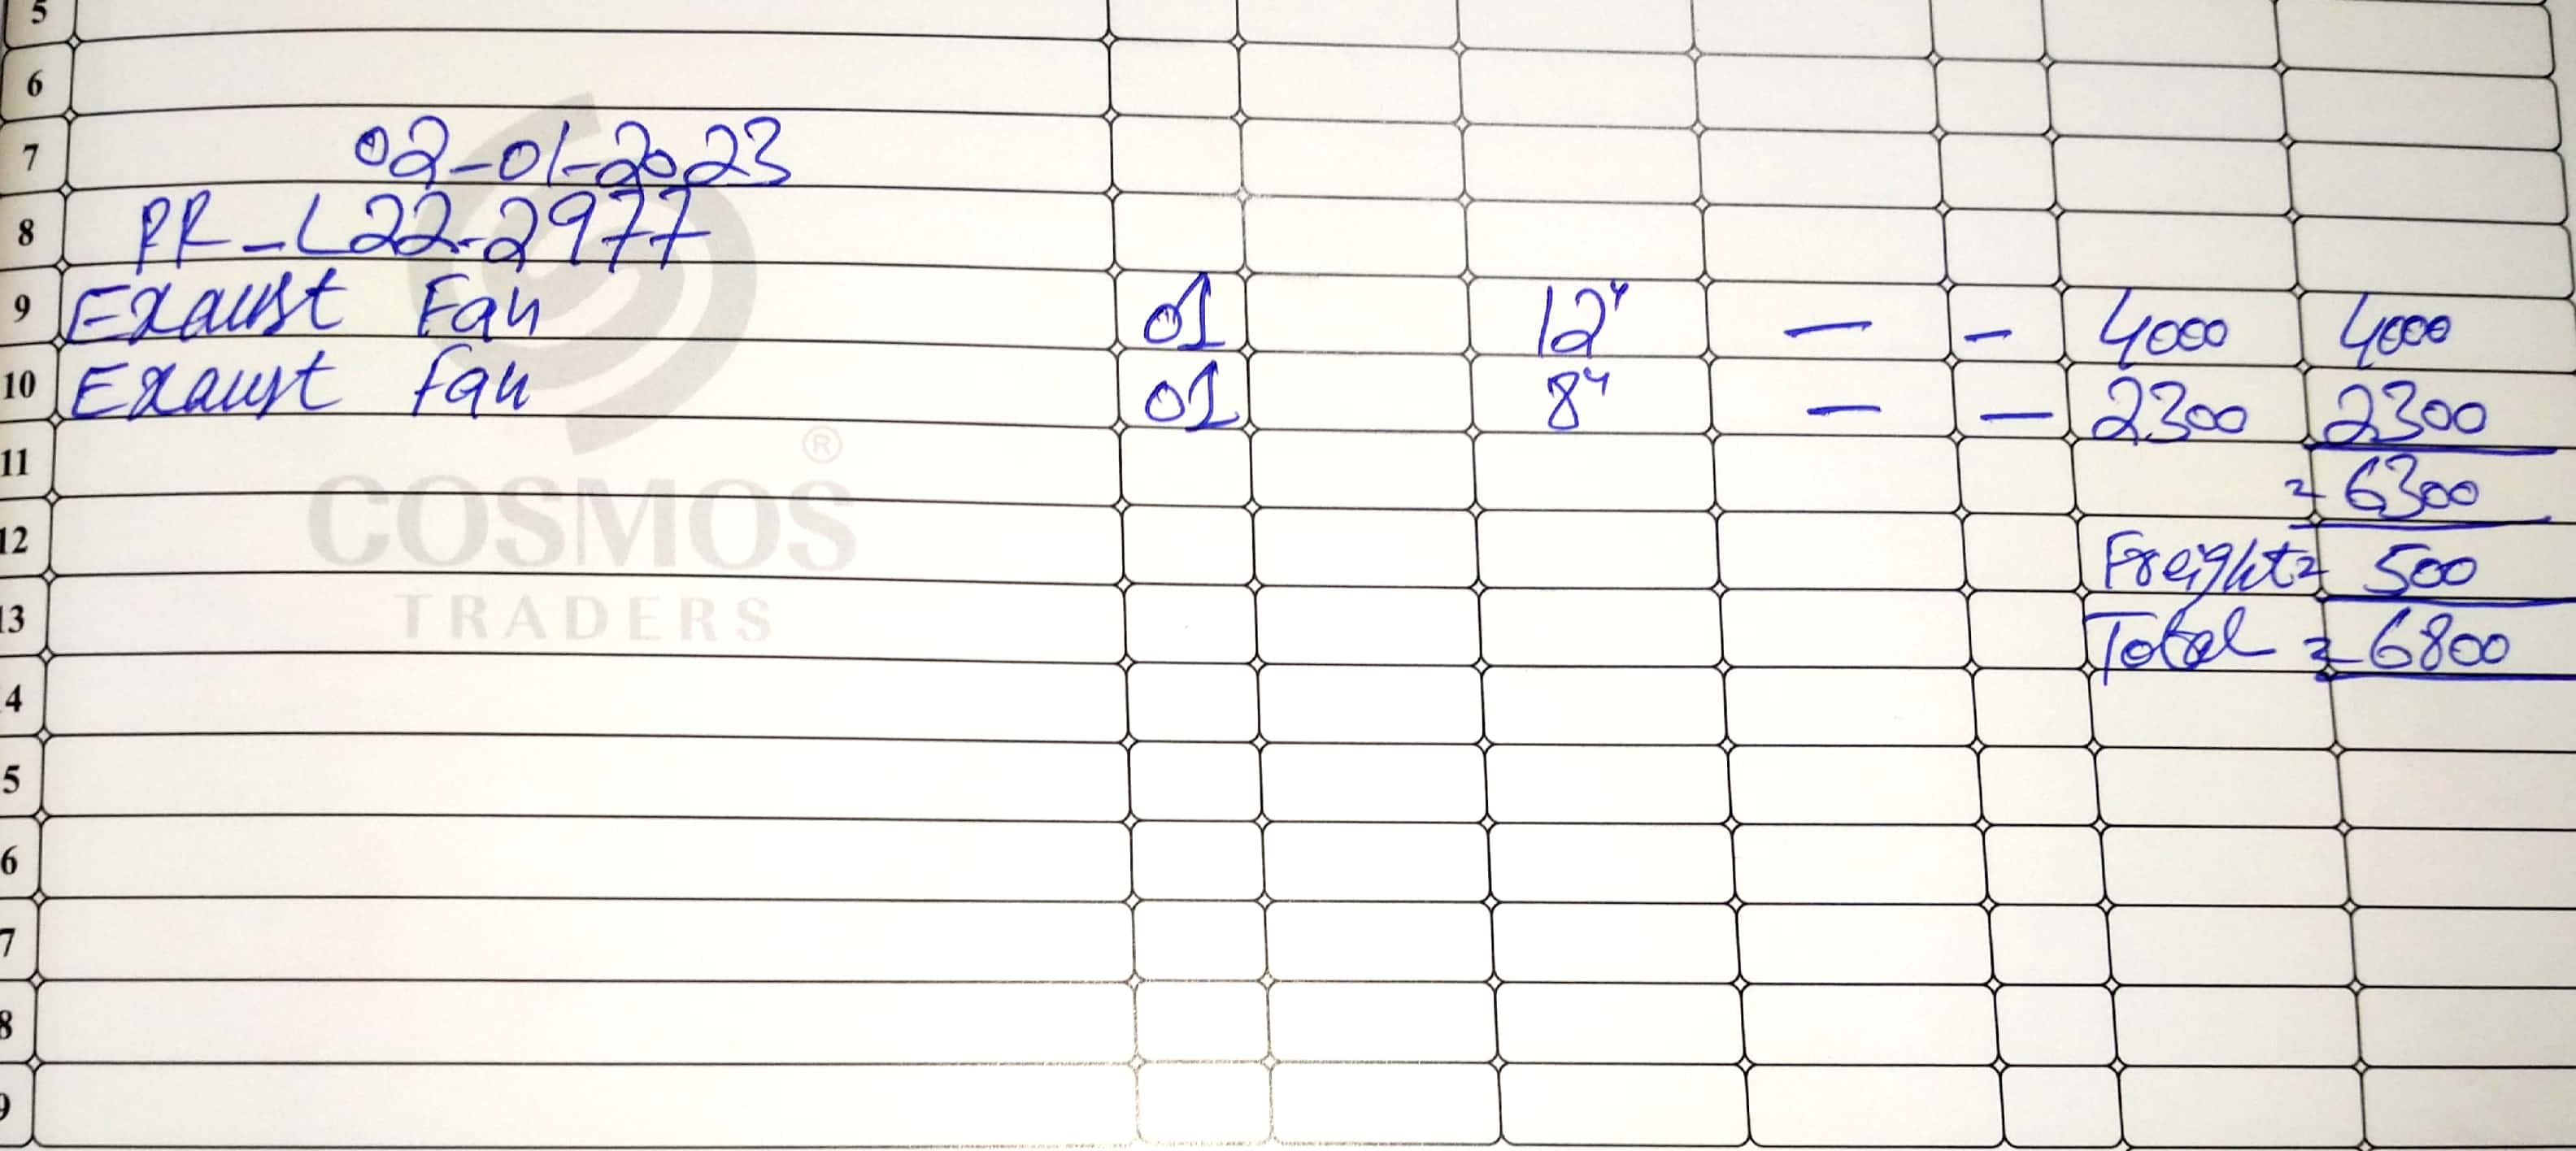 5
6
7 02-01-2023
8 PR-L22-2977
9 Exaust Fan 01 12" — — 4000 4000
10 Exaust fan 01 8" — — 2300 2300
11 = 6300
12 Freight= 500
13 Total = 6800
4
5
6
7
8
9
®
COSMOS
TRADERS